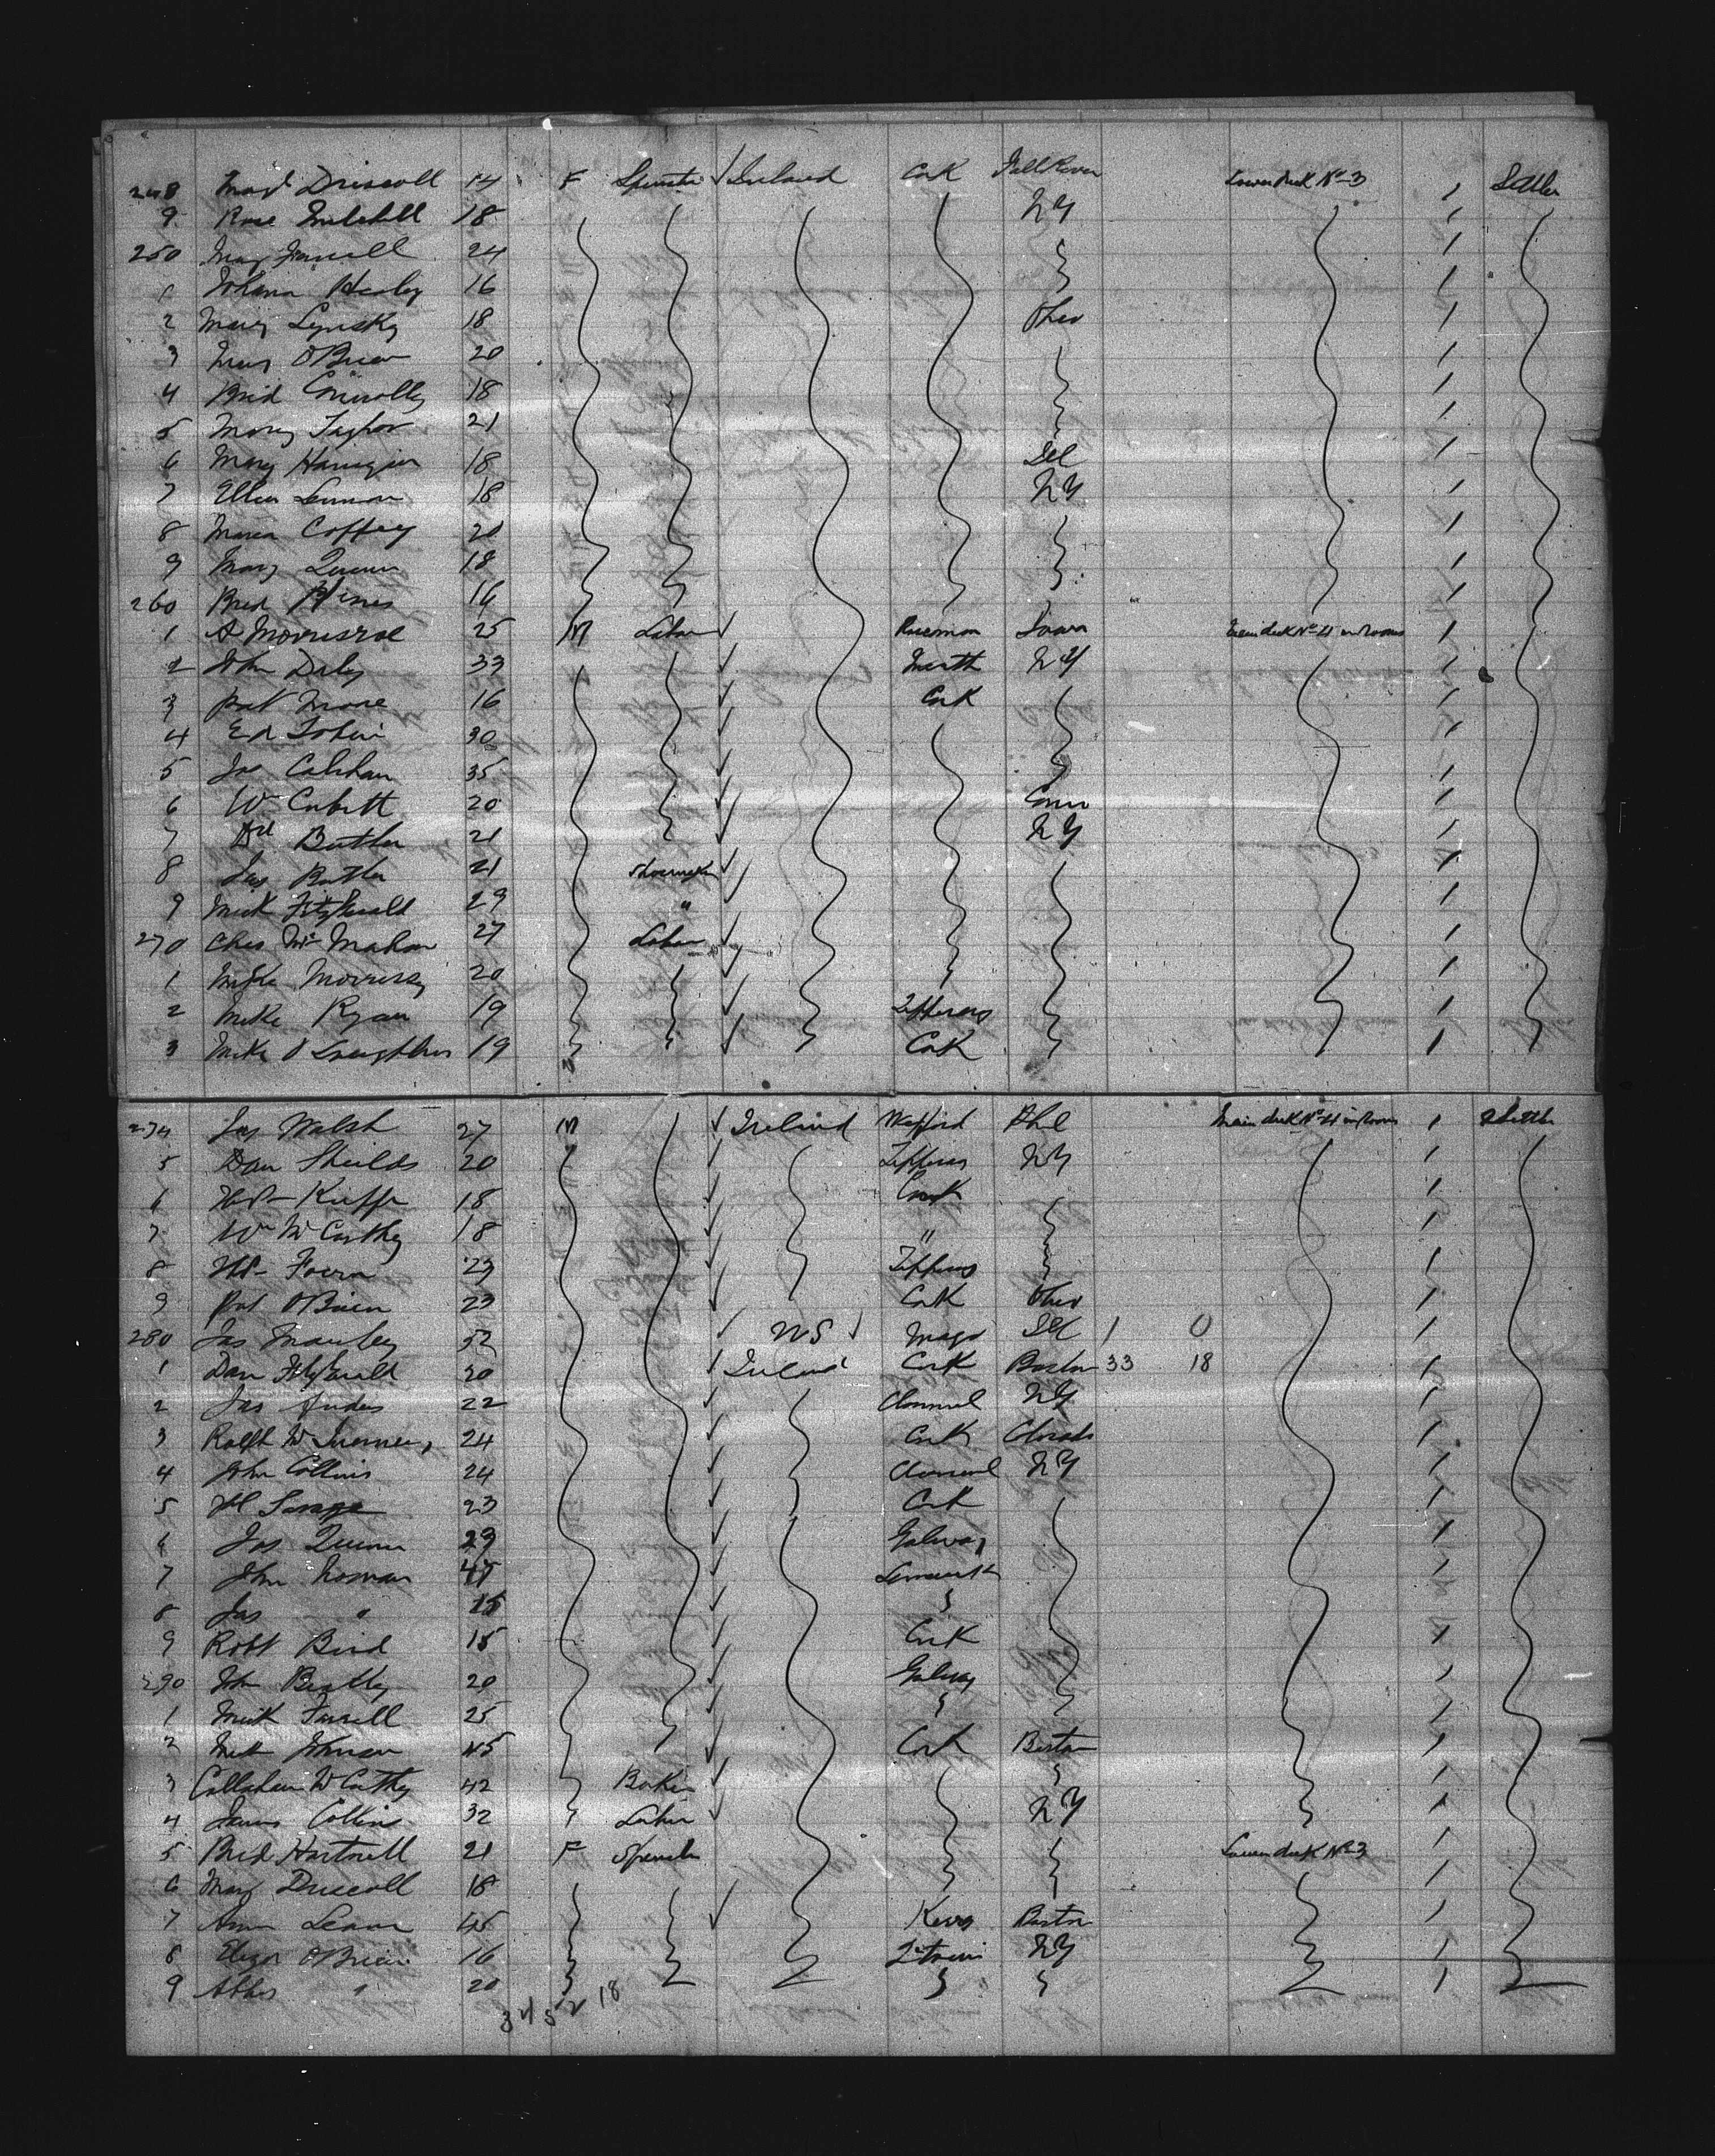 248 Mary Driscoll 14 F Spinster Ireland Cork Fall River Lower deck No 3 / Settler
9 Rose Mitchell 18 NY /
250 Mary Farrell 24 /
1 Johana Healey 16 /
2 Mary Lynsky 18 Ohio /
3 Mary O'Brien 20 /
4 Brid Connolly 18 /
5 Mary Taylor 21 /
6 Mary Hanigan 18 Ill /
7 Ellen Lennon 18 NY /
8 Maria Coffey 20 /
9 Mary Quinn 18 /
260 Brid Hines 16 /
1 A Morrisroe 25 M Labor Roscommon Iowa Main deck No 4 in Rooms /
2 John Daly 33 Meath NY /
3 Pat Moore 16 Cork /
4 Ed Tobin 30
5 Jas Calahan 35 /
6 Wm Corbett 20 Conn /
7 Butler 21 NY /
8 Jas Butler 21 Shoemaker /
9 Mick Fitzgerald 29 " /
270 Chas McMahon 27 Labor /
1 Mike Morrissy 20 /
2 Mike Ryan 19 Tipperary /
3 Mike O'Loughlin 19 Cork /
274 Jas Walsh 27 M Ireland Wexford Phil Main deck No 4 in Rooms / Settler
5 Dan Shields 20 Tipperary NY /
6 Keiffe 18 Cork /
7 Wm McCarthy 18 " /
8 23 Tipperary /
9 Pat O'Brien 23 Cork Ohio /
280 Jas 52 US Mayo Ill 1 0 /
1 Dan Fitzgerald 20 Ireland Cork Boston 33 18 /
2 Jas 22 Clonmel NY /
3 Ralph 24 Cork Colorado /
4 John Collins 24 Clonmel NY /
5 Savage 23 Cork /
6 Jas Quinn 29 Galway /
7 John Noonan 47 Limerick /
8 Jas " 15
9 Robt Bird 15 Cork /
290 John Beatley 20 Galway /
1 Mick Farrell 25 /
2 Johnson 45 Cork Boston /
3 Callahan McCarthy 42 Baker /
4 James Collins 32 Labor NY /
5 Brid Hartnett 21 F Spinster Lower deck No 3 /
6 Mary Driscoll 18 /
7 Ann Leane 45 Kerry Boston /
8 Eliza O'Brien 16 Leitrim NY /
9 Abbey " 20 /
34 52 18